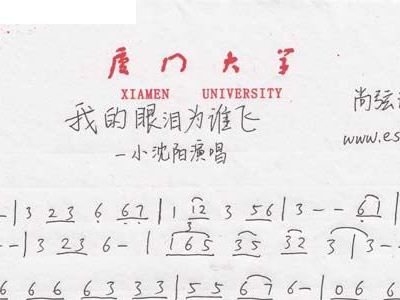 厦门大学
XIAMEN UNIVERSITY
我的眼泪为谁飞
尚弦
—小沈阳演唱
www.es
- | 3 23 6 67 | 1 12 3 56 | 3 - - 61 |
- - | 3 23 6 - | 165 35 32 3 | 3 - -
6 6 6 6 3 3 | 5 5 6 7 6 - | 0 6 6